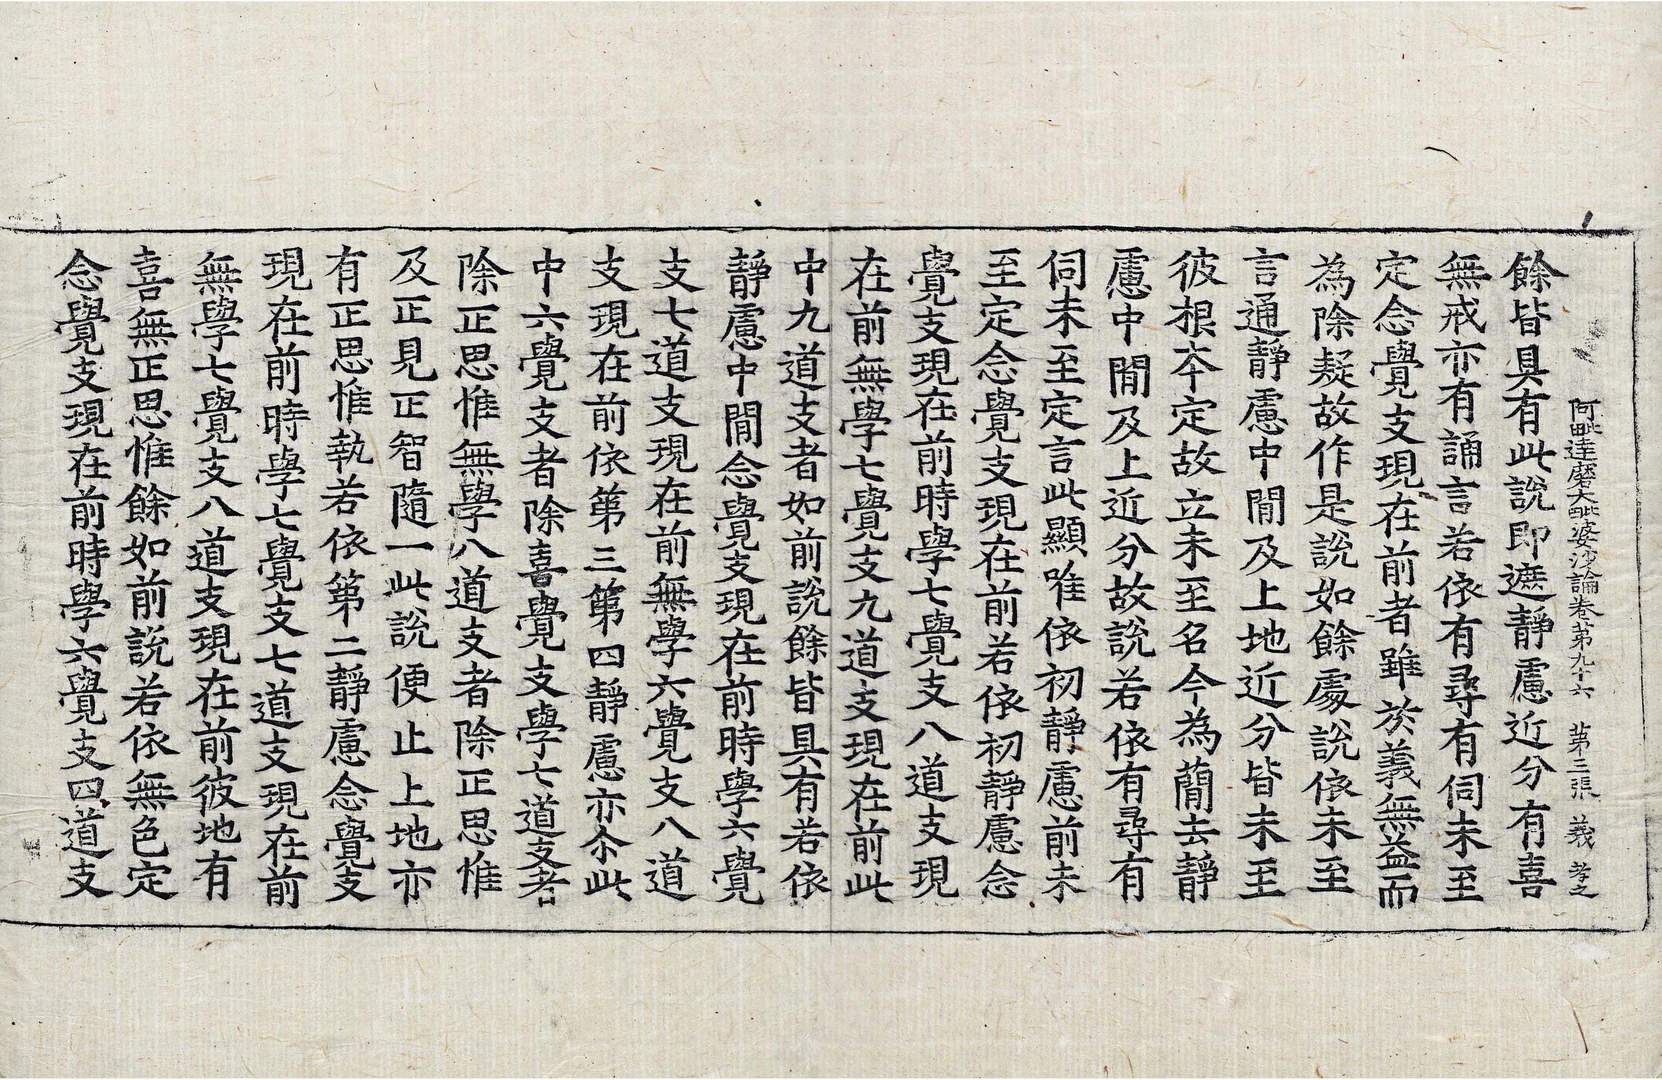 阿毗達磨大毗婆沙論卷第九十六 第三張 義 孝之
餘皆具有此說即遮靜慮近分有喜
無戒亦有誦言若依有尋有伺未至
定念覺支現在前者雖於義無益而
為除疑故作是說如餘處說依未至
言通靜慮中間及上地近分皆未至
彼根本定故立未至名今為蕳去靜
慮中間及上近分故說若依有尋有
伺未至定言此顯唯依初靜慮前未
至定念覺支現在前若依初靜慮念
覺支現在前時學七覺支八道支現
在前無學七覺支九道支現在前此
中九道支者如前說餘皆具有若依
靜慮中間念覺支現在前時學六覺
支七道支現在前無學六覺支八道
支現在前依第三第四靜慮亦尒此
中六覺支者除喜覺支學七道支者
除正思惟無學八道支者除正思惟
及正見正智隨一此說便止上地亦
有正思惟執若依第二靜慮念覺支
現在前時學七覺支七道支現在前
無學七覺支八道支現在前彼地有
喜無正思惟餘如前說若依無色定
念覺支現在前時學六覺支四道支